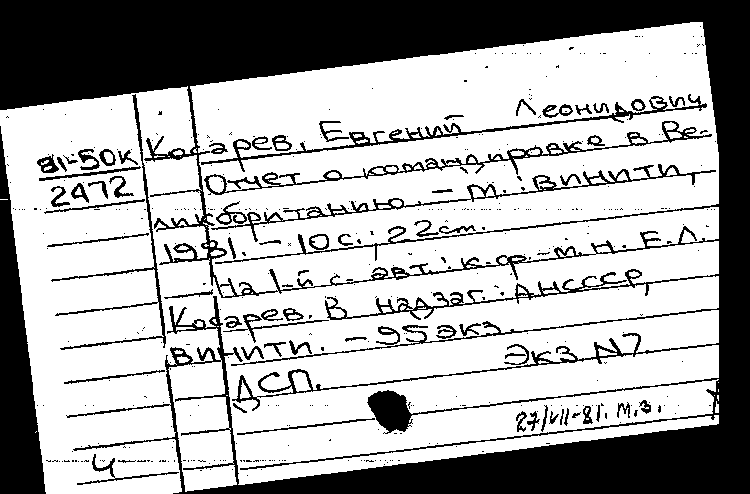 81-50к Косарев, Евгений Леонидович.
2472 Отчет о командировке в Ве-
ликобританию. - М.: ВИНИТИ,
1981. - 10 с.; 22 см.
На 1-й с. авт.: к.ф.-м.н. Е.Л.
Косарев. В надзаг.: АН СССР,
ВИНИТИ. - 95 экз.
Экз N7.
ДСП.
27/VII-81г. М.З.
4